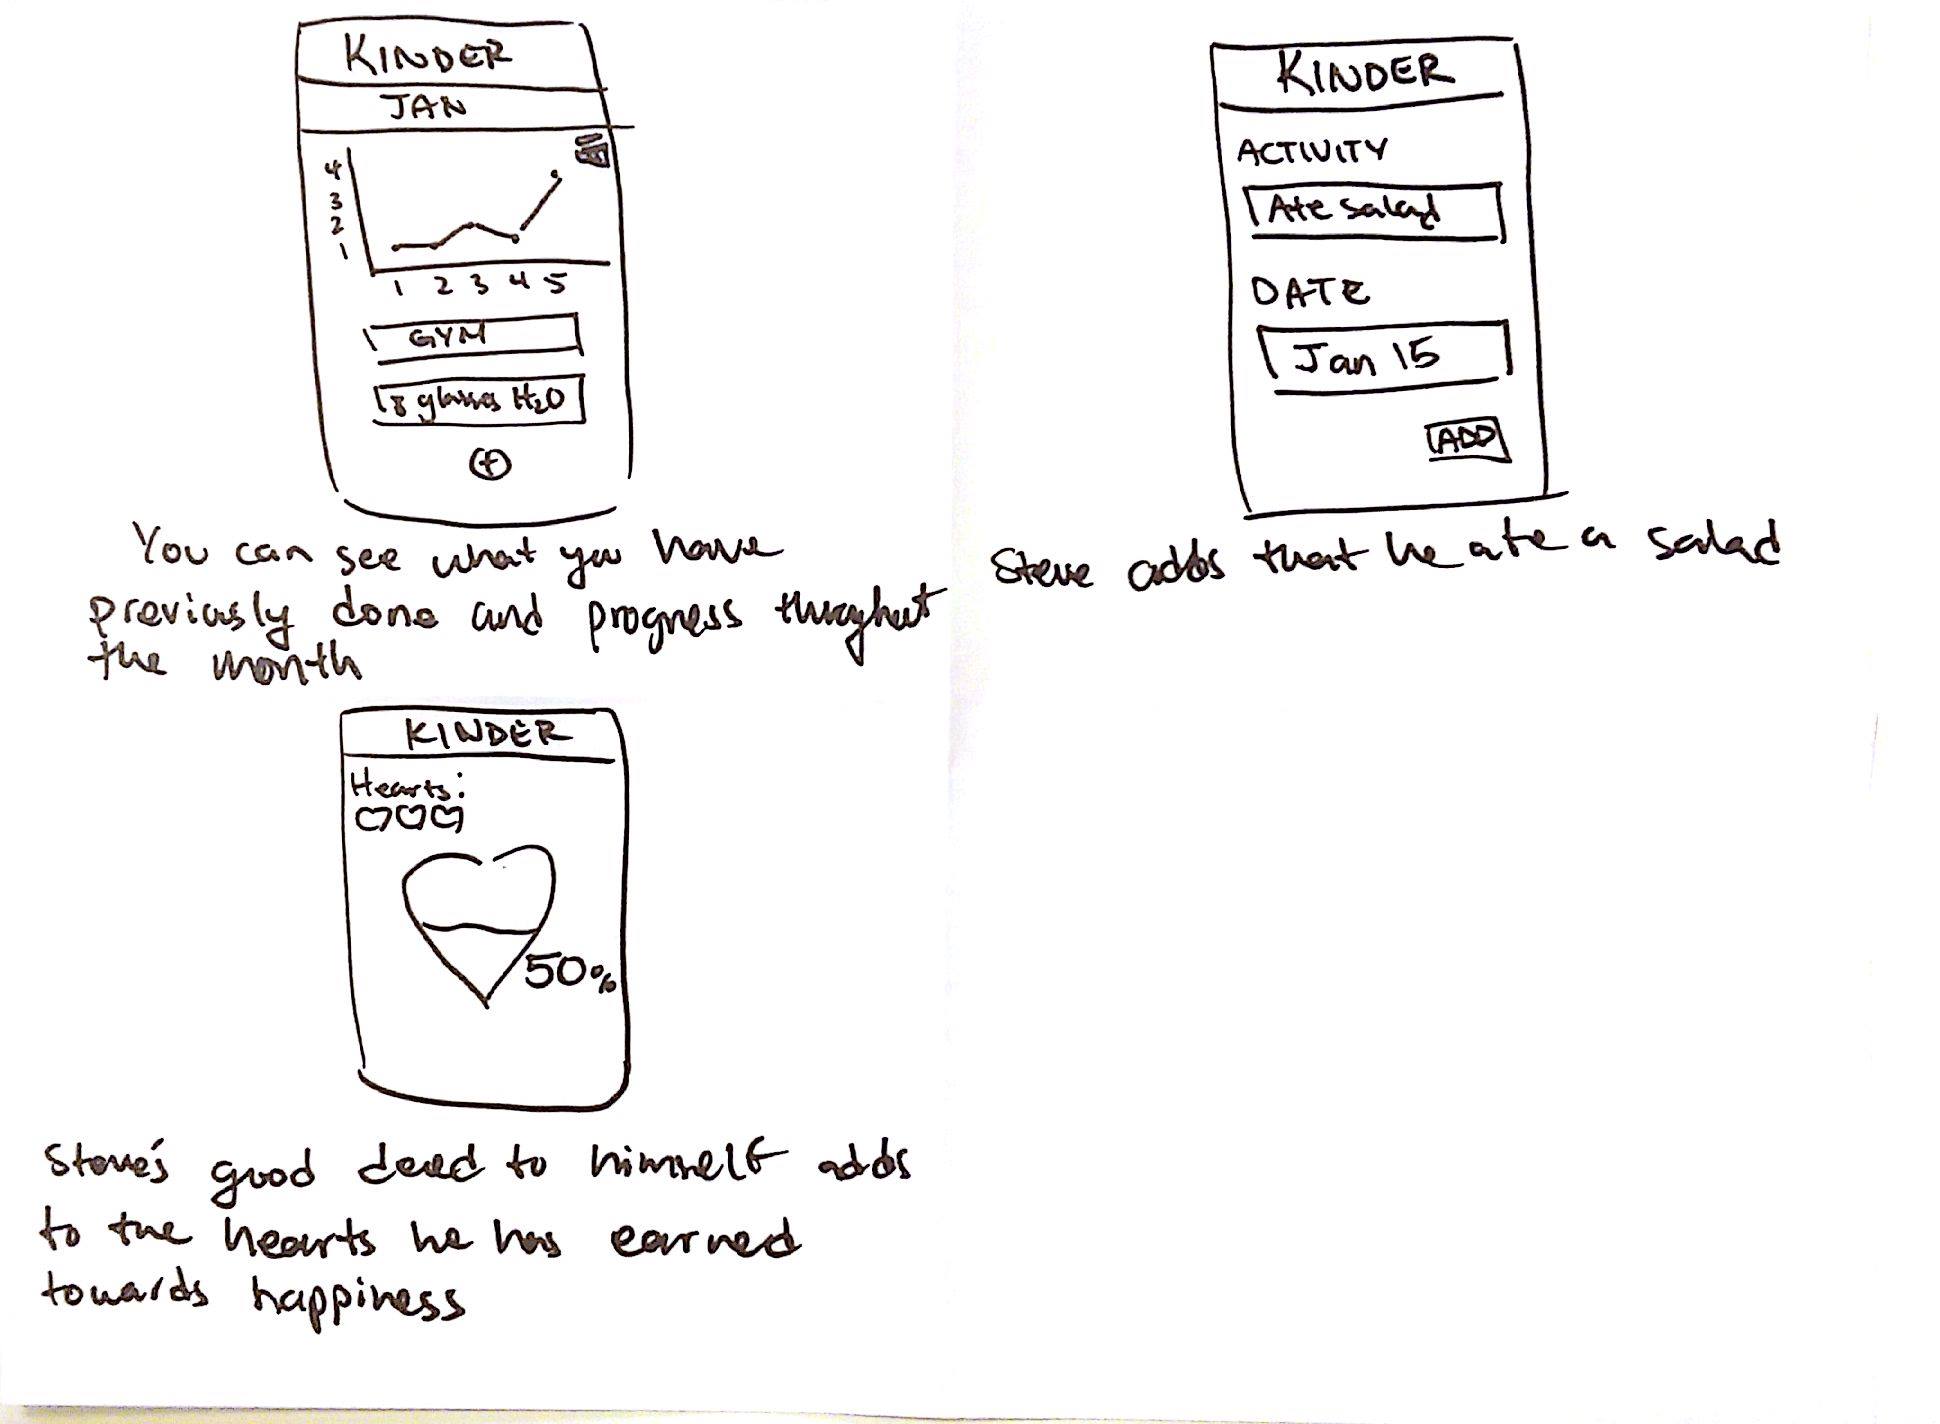 KINDER
JAN
4
3
2
1
1 2 3 4 5
GYM
8 glasses H2O
+
You can see what you have
previously done and progress throughout
the month
KINDER
ACTIVITY
Ate salad
DATE
Jan 15
ADD
Steve adds that he ate a salad
KINDER
Hearts:
50%
Steve's good deed to himself adds
to the hearts he has earned
towards happiness